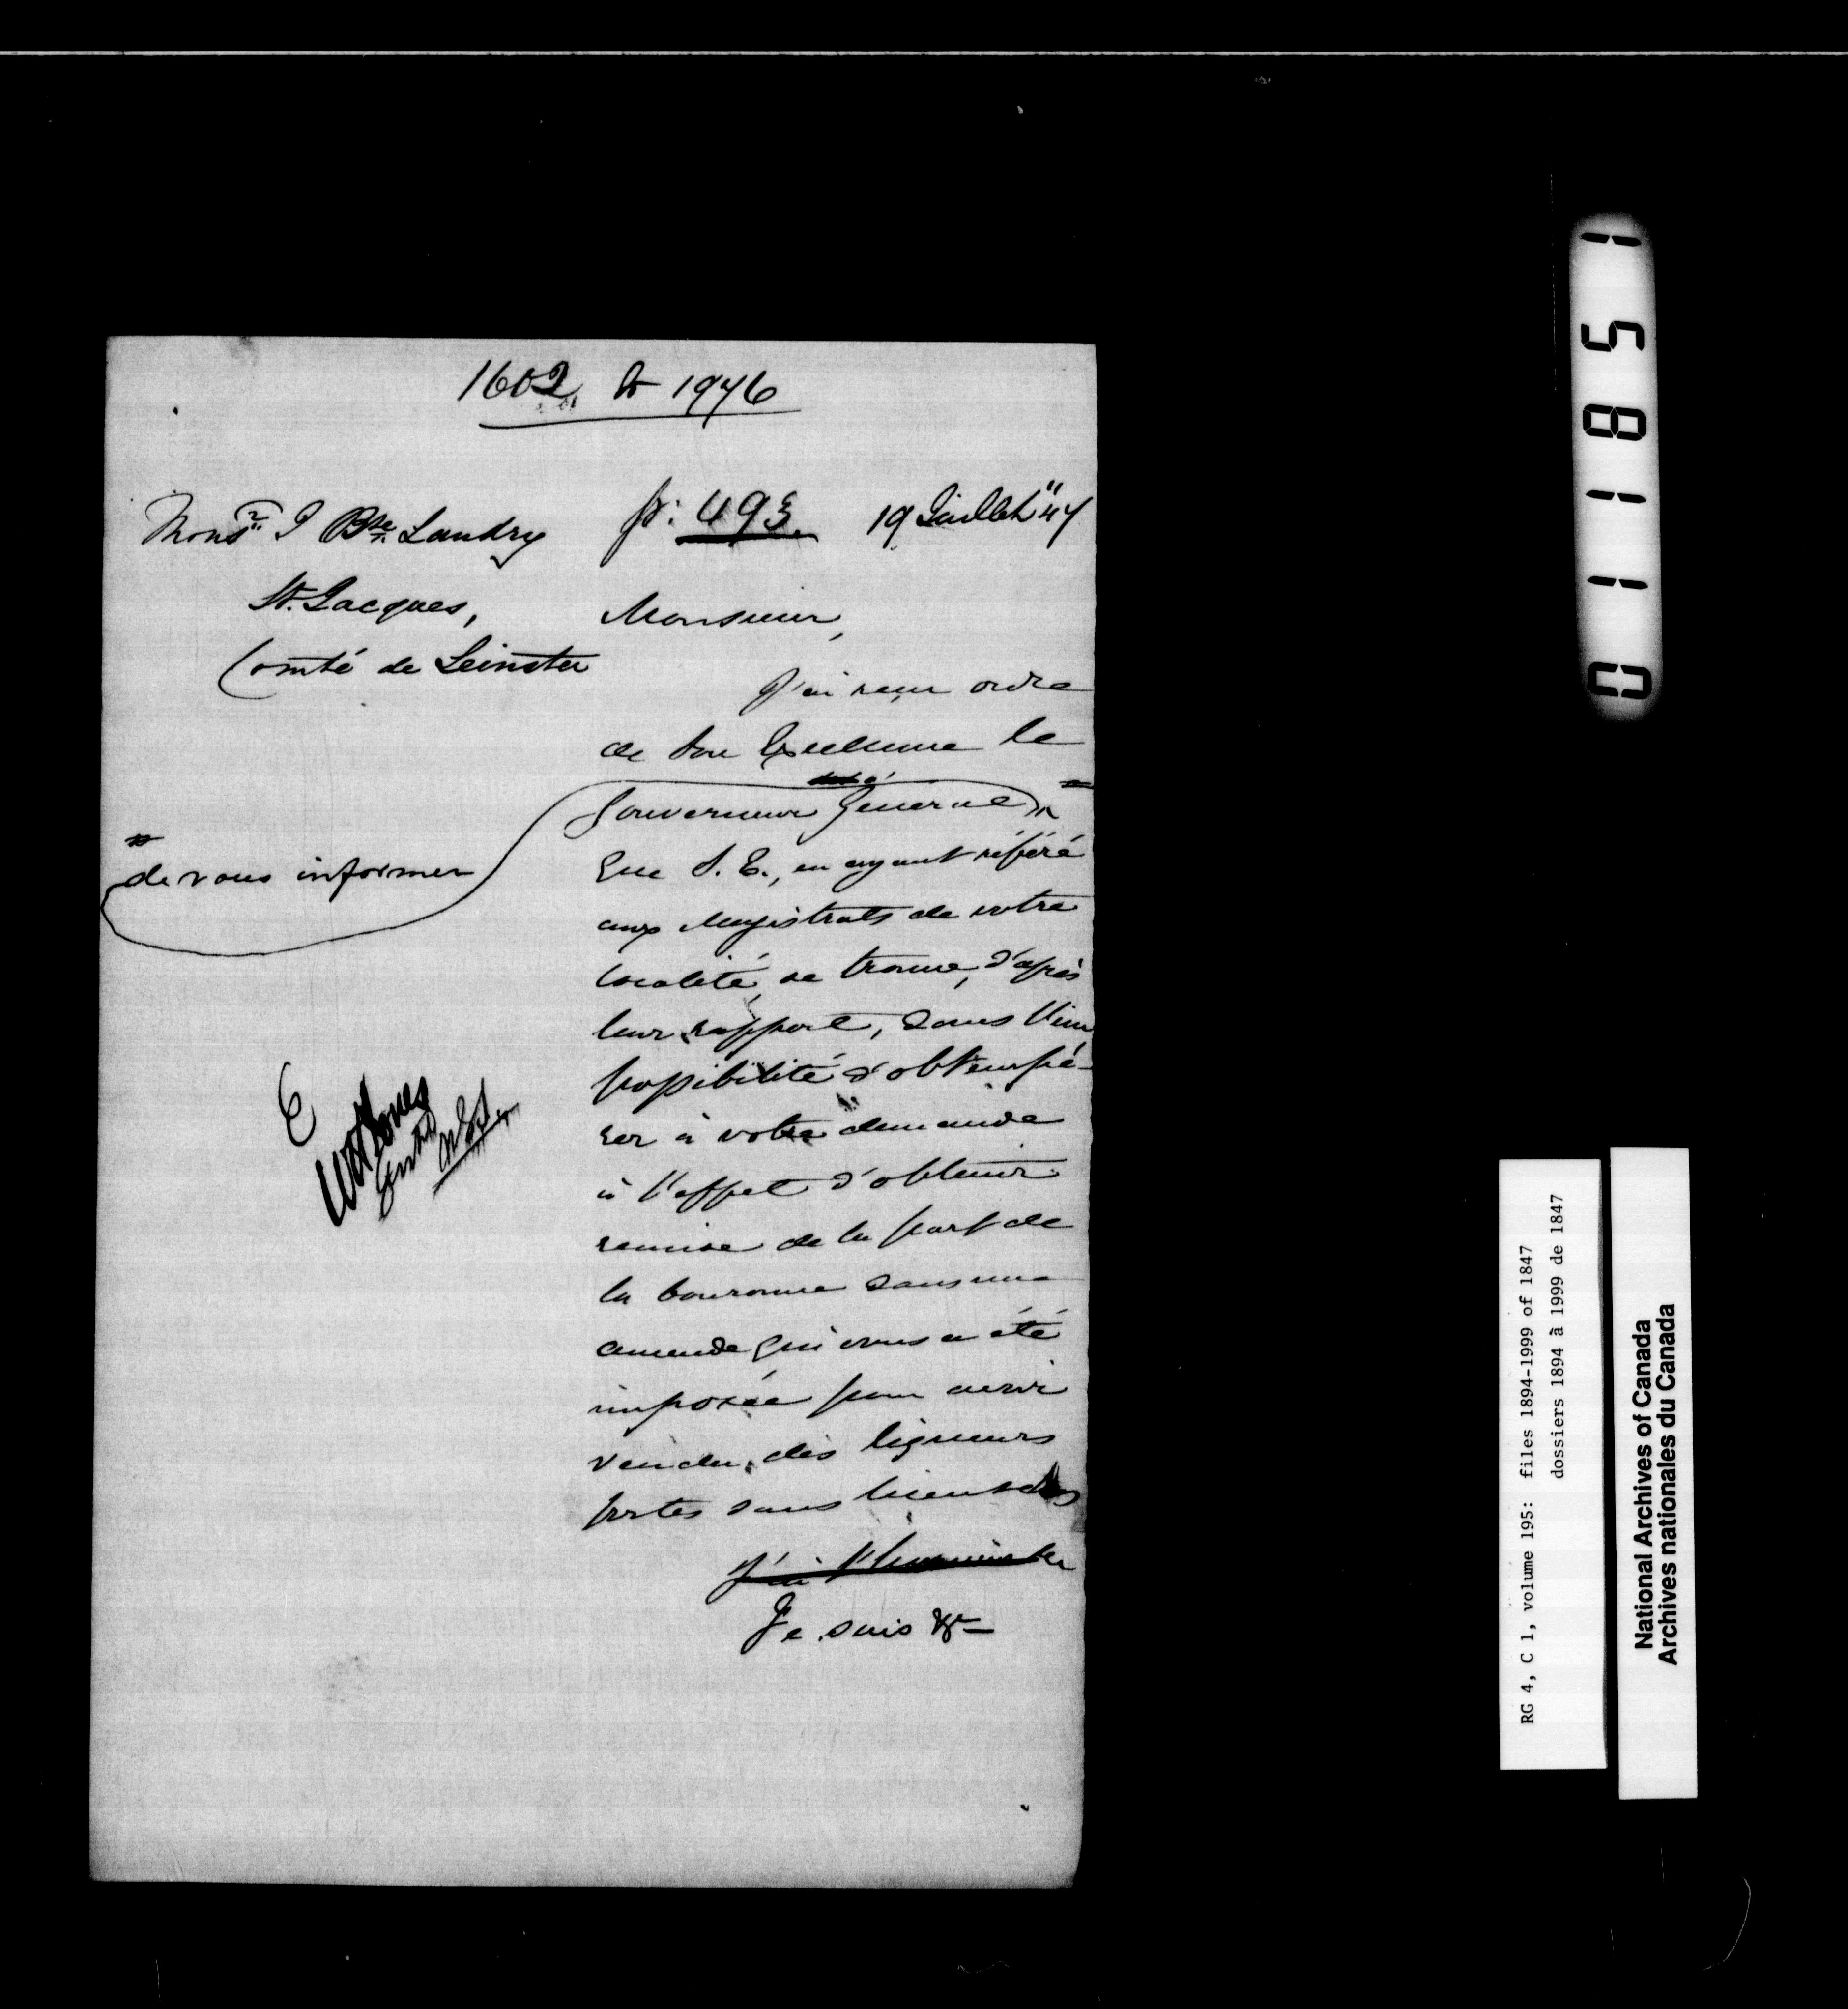 1602 & 1976
p: 493. 19 Juillet "47
Monsr. J Bte. Landry
St. Jacques,
Comté de Leinster
Monsieur,
J'ai reçu ordre
de Son Excellence le
Gouverneur General
de vous informer
que S. E., en ayant référé
aux Magistrats de votre
localité, se trouve, d'après
leur rapport, dans l'im
possibilité d'obtempé-
rer à votre demande
à l'effet d'obtenir
remise de la part de
la Couronne dans une
amende qui vous a été
imposée pour avoir
vendu des liqueurs
fortes sans licence
J'ai l'honneur
Je suis &c
E
011851
RG 4, C 1, volume 195: files 1894-1999 of 1847
dossiers 1894 à 1999 de 1847
National Archives of Canada
Archives nationales du Canada